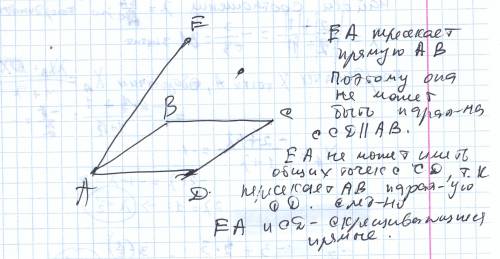 E
B
C
A
D.
EA пересекает
прямую AB
Поэтому она
не может
быть парал-на
с CD || AB.
EA не может иметь
общих точек с CD, т.к
пересекает AB парал-ую
CD. след-но
EA и CD - скрещивающиеся
прямые.